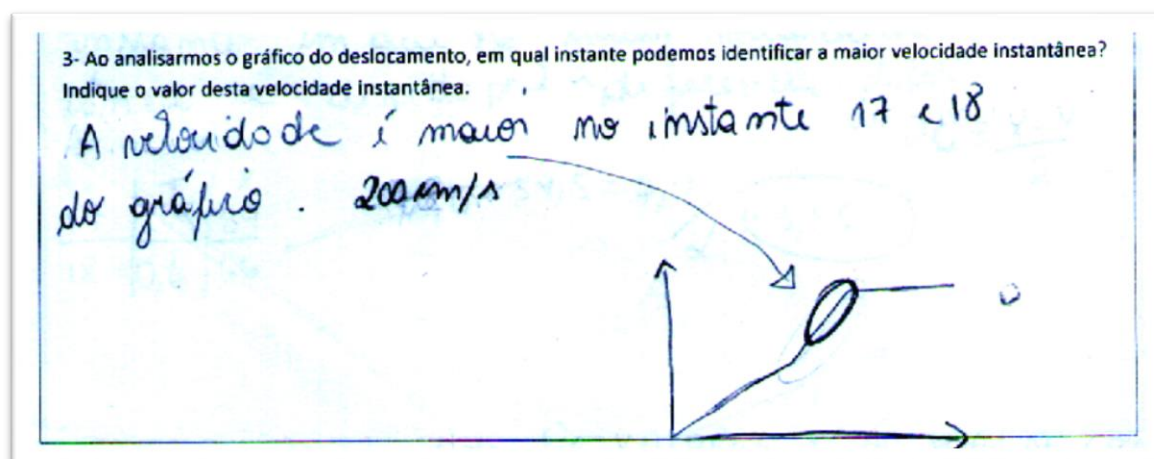 3- Ao analisarmos o gráfico do deslocamento, em qual instante podemos identificar a maior velocidade instantânea?
Indique o valor desta velocidade instantânea.
A velocidade é maior no instante 17 e 18
do gráfico. 200 cm/s